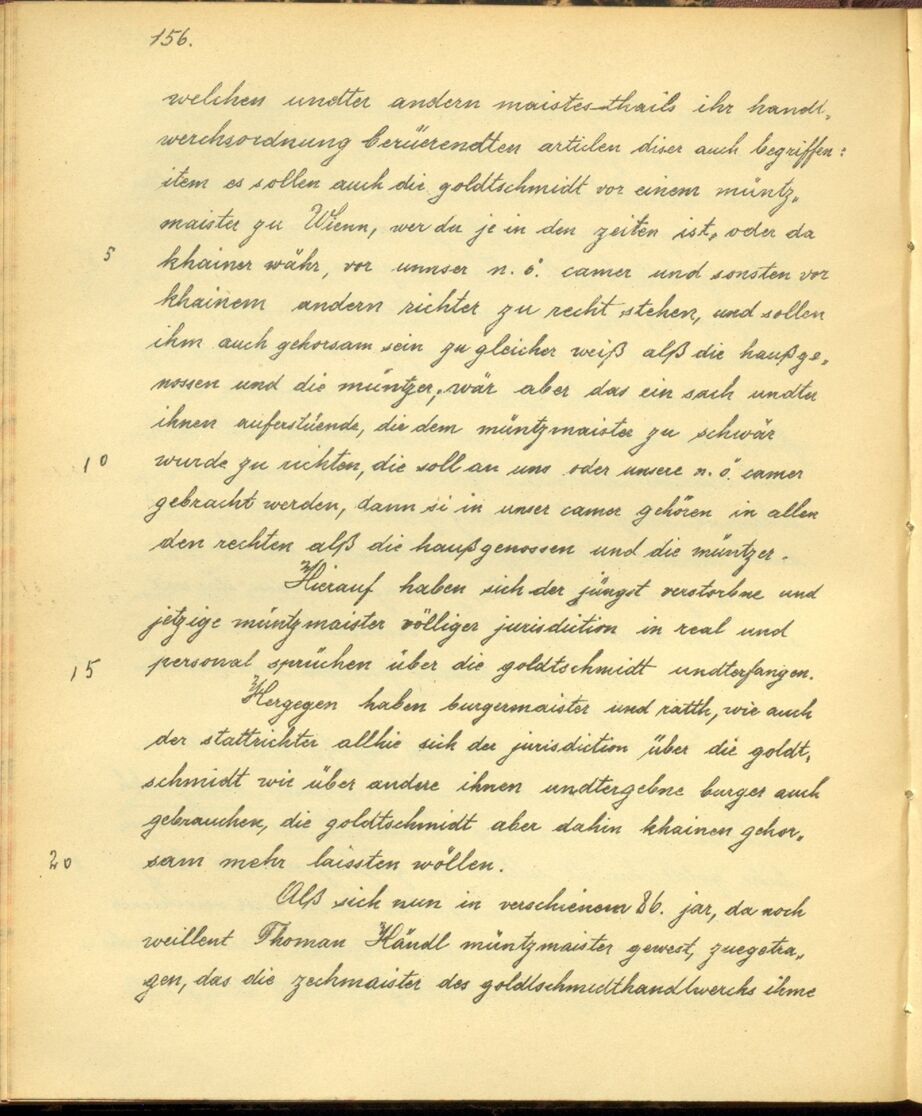 156.
welchen undter andern maistes-thails ihr handt„
werchsordnung berüerendten articlen diser auch begriffen:
item es sollen auch die goldtschmidt vor einem müntz„
maister zu Wienn, wer der je in den zeiten ist, oder da
5 khainer währ, vor unnser n. ö. camer und sonsten vor
khainem andern richter zu recht stehen, und sollen
ihm auch gehorsam sein zu gleicher weiß alß die haußge„
nossen und die müntzer; wär aber das ein sach undter
ihnen auferstüende, die dem müntzmaister zu schwär
10 wurde zu richten, die soll an uns oder unsere n. ö. camer
gebracht werden, dann si in unser camer gehören in allen
den rechten alß die haußgenossen und die müntzer.
Hierauf haben sich der jüngst verstorbne und
jetzige müntzmaister völliger jurisdiction in real und
15 personal sprüchen über die goldtschmidt undterfangen.
Hergegen haben burgermaister und ratth, wie auch
der stattrichter allhie sich der jurisdiction über die goldt„
schmidt wie über andere ihnen undtergebne burger auch
gebrauchen, die goldtschmidt aber dahin khainen gehor„
20 sam mehr laissten wöllen.
Alß sich nun in verschienem 86. jar, da noch
weillent Thoman Händl müntzmaister gewest, zuegetra„
gen, das die zechmaister des goldtschmidthandtwerchs ihme